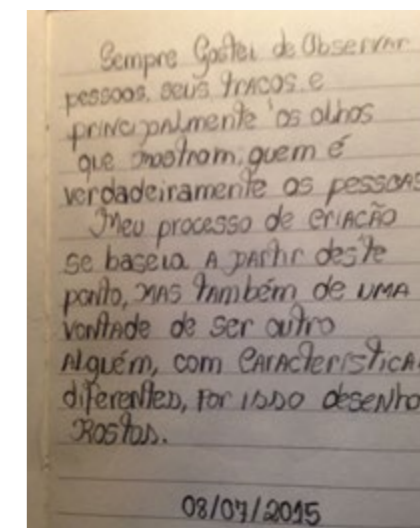 Sempre Gostei de Observar
pessoas, seus traços e
principalmente os olhos
que mostram quem é
verdadeiramente as pessoas
Meu processo de criação
se baseia a partir deste
ponto, mas também de uma
vontade de ser outro
alguém, com característica
diferentes, por isso desenho
Rostos.
08/07/2015